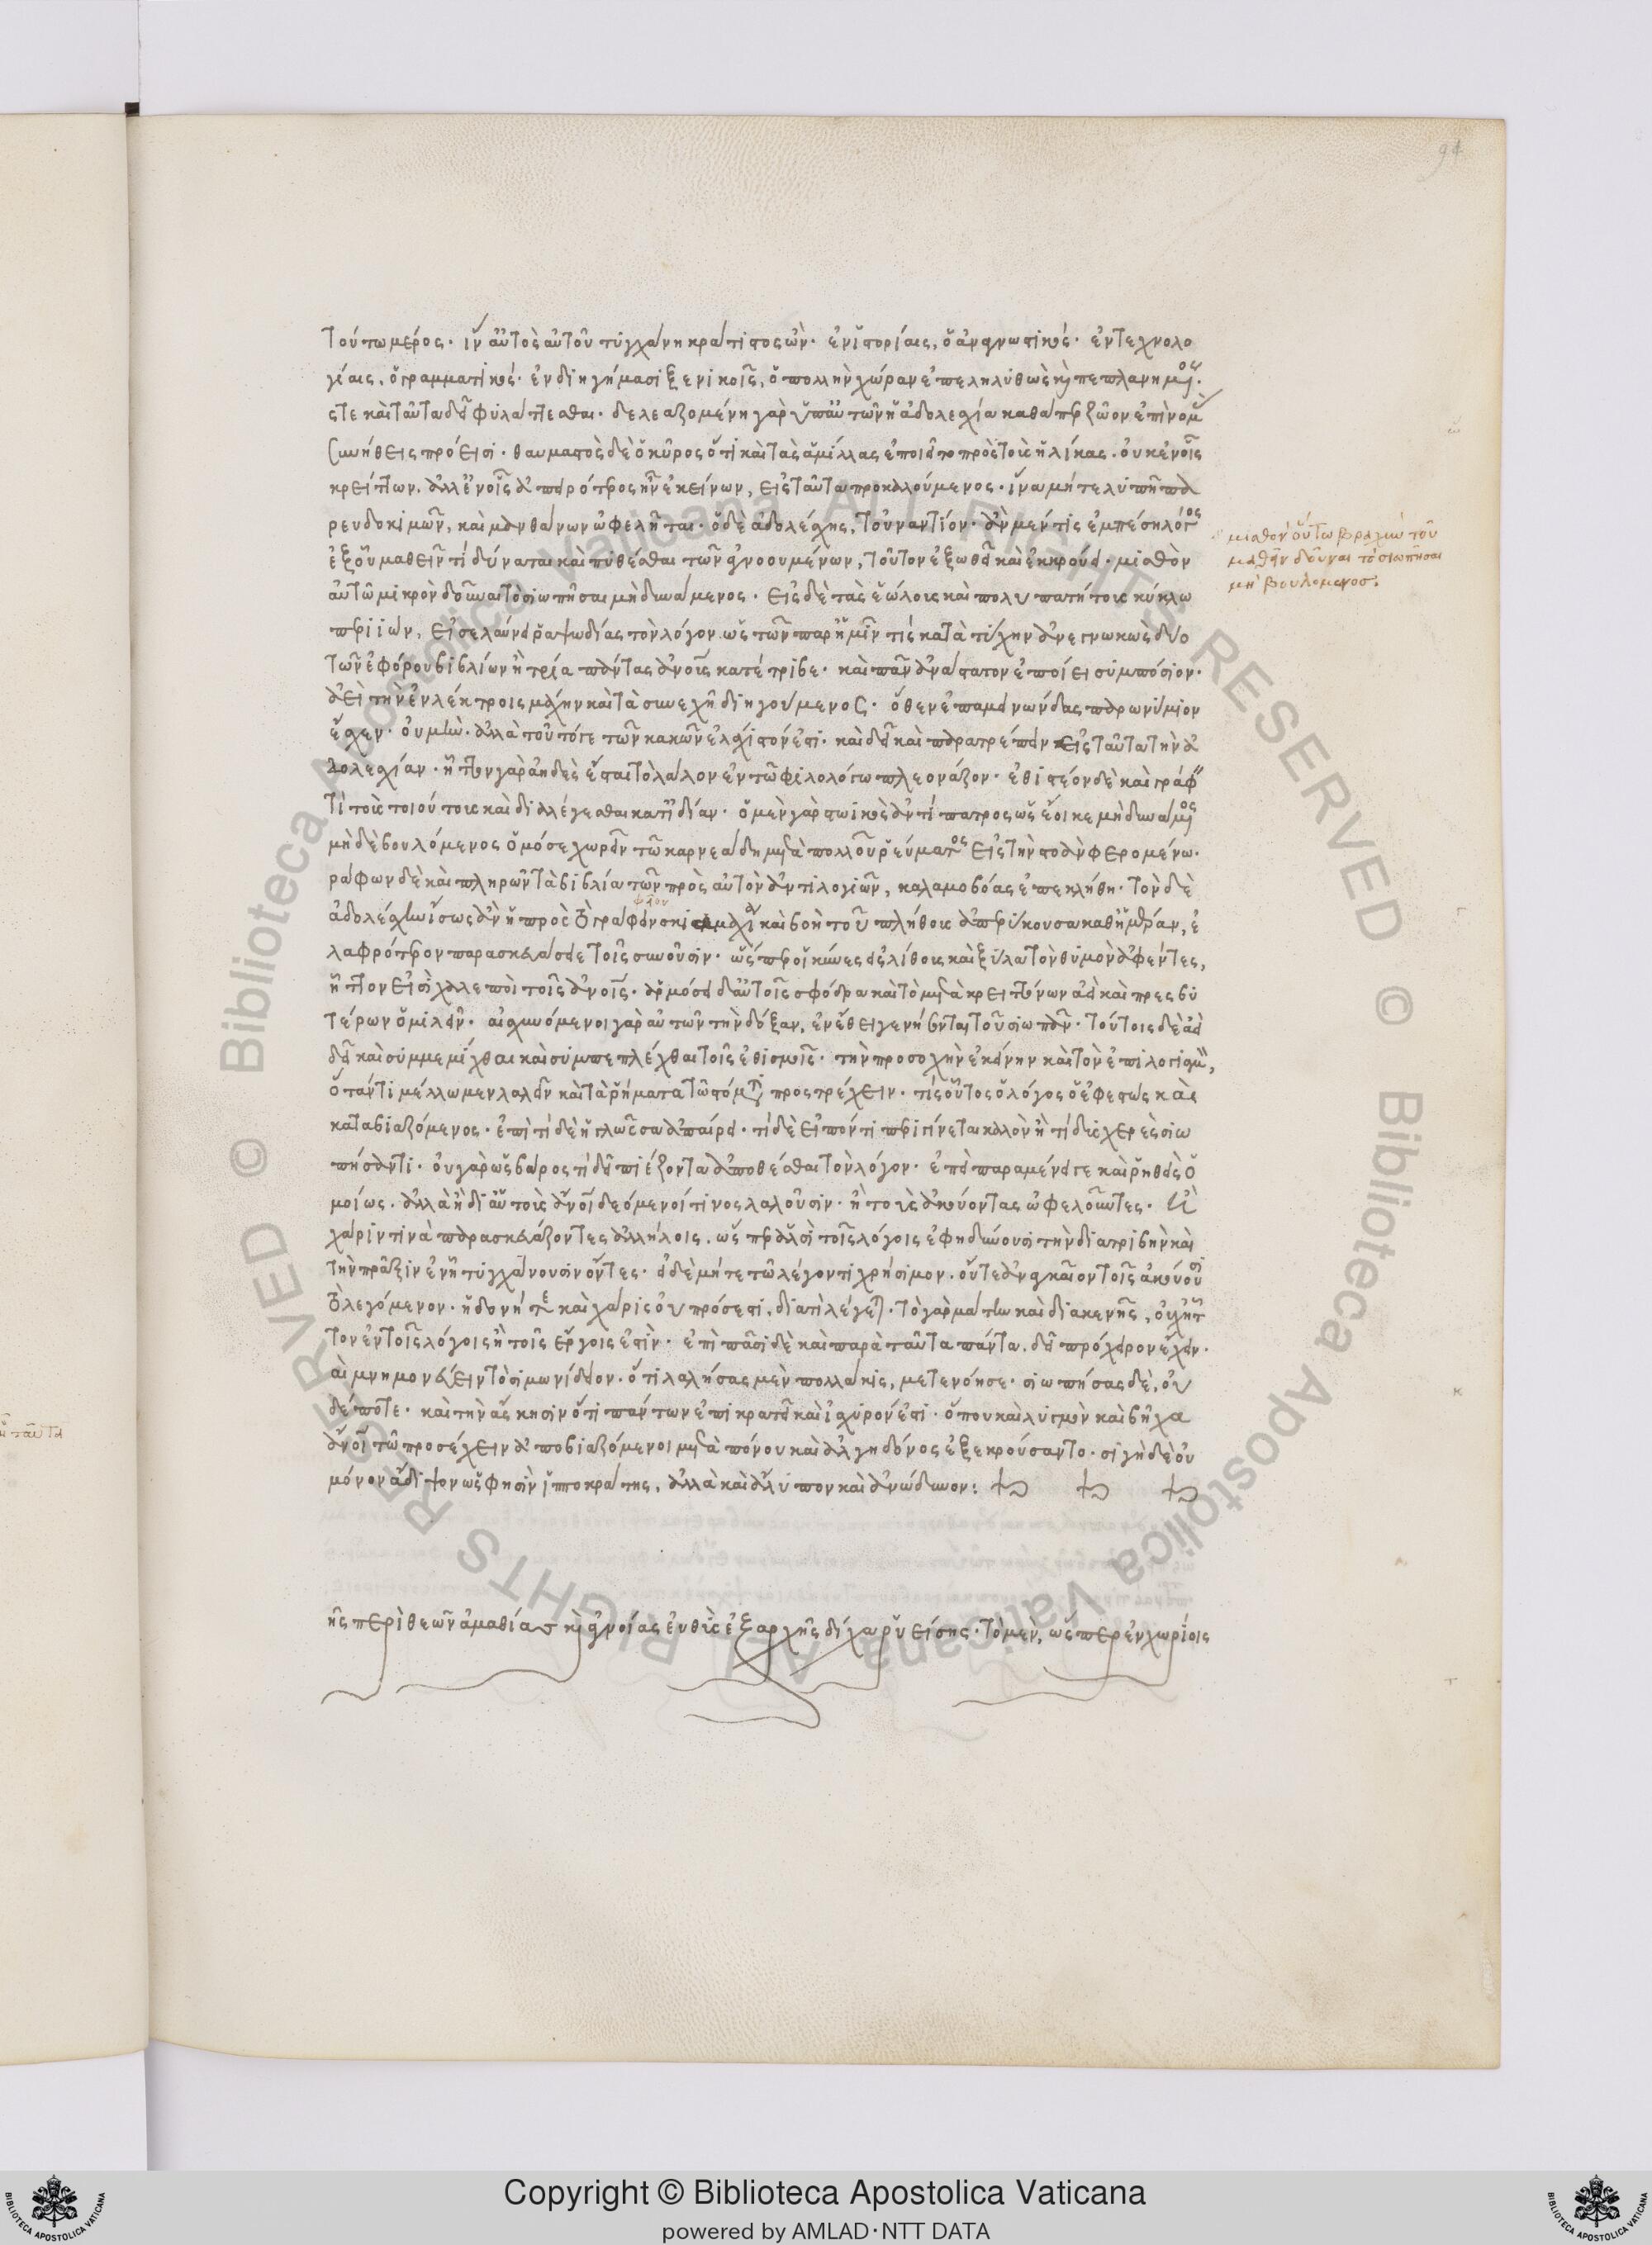 94
τούτω μέρος· ἵν' αὐτὸς αὑτοῦ τυγχάνῃ κράτιστος ὤν· ἐν ἱστορίαις, ὁ ἀναγνωστικός· ἐν τεχνολο
γίαις, ὁ γραμματικός· ἐν διηγήμασι ξενικοῖς, ὁ πολλὴν χώραν ἐπεληλυθὼς καὶ πεπλανημένος.
στε καὶ ταῦτα δεῖ φυλάττεσθαι· δελεαζομένη γὰρ ὑπ' αὐτῶν ἡ ἀδολεσχία καθάπερ ζῶον ἐπὶ νομὰς
συνήθεις πρόεισι· θαυμαστὸς δὲ ὁ κῦρος ὅτι καὶ τὰς ἁμίλλας ἐποιεῖτο πρὸς τοὺς ἥλικας· οὐκ ἐν οἷς
κρείττων, ἀλλ' ἐν οἷς ἀπειρότερος ἦν ἐκείνων, εἰς ταῦτα προκαλούμενος· ἵνα μήτε λυπῇ πα
ρευδοκιμῶν, καὶ μανθάνων ὠφελῆται· ὁ δὲ ἀδολέσχης, τοὐναντίον· ἂν μέν τις ἐμπέσῃ λόγος
ἐξ οὗ μαθεῖν τι δύναται καὶ πυθέσθαι τῶν ἀγνοουμένων, τοῦτον ἐξωθεῖ καὶ ἐκκρούει· μισθὸν
αὐτῷ μικρὸν δοῦναι τὸ σιωπῆσαι μὴ δυνάμενος· εἰς δὲ τὰς ἑώλους καὶ πολυπατήτους κύκλω
περιιών, εἰσελαύνει ῥαψωδίας τὸν λόγον· ὡς τῶν παρ' ἡμῖν τις κατὰ τύχην ἀνεγνωκὼς δύο
τῶν ἐφόρου βιβλίων ἢ τρία πάντας ἀνθρώπους κατέτριβε· καὶ πᾶν ἀνάστατον ἐποίει συμπόσιον·
ἀεὶ τὴν ἐν λέκτροις μάχην καὶ τὰ συνεχῆ διηγούμενος· ὅθεν ἐπαμεινώνδας παρωνύμιον
ἔσχεν· οὐ μὴν ἀλλὰ τοῦτό γε τῶν κακῶν ἐλάχιστόν ἐστι· καὶ δεῖ καὶ παρατρέπειν εἰς ταῦτα τὴν ἀ
δολεσχίαν· ἧττον γὰρ ἀηδὲς ἔσται τὸ λάλον ἐν τῶ φιλολόγω πλεονάζον· ἐθιστέον δὲ καὶ γράφειν
τι τοὺς τοιούτους καὶ διαλέγεσθαι κατ' ἰδίαν· ὁ μὲν γὰρ στωικὸς ἀντίπατρος ὡς ἔοικε μὴ δυνάμενος
μηδὲ βουλόμενος ὁμόσε χωρεῖν τῶ καρνεάδη μετὰ πολλοῦ ῥεύματος εἰς τὴν στοὰν φερομένω·
γράφων δὲ καὶ πληρῶν τὰ βιβλία τῶν πρὸς αὐτὸν ἀντιλογιῶν, καλαμοβόας ἐπεκλήθη· τὸν δὲ
ἀδολέσχην ἴσως ἂν ἡ πρὸς τὸ γραφεῖον σκιαμαχία καὶ βοὴ τοῦ πλήθους ἀπερύκουσα καθ' ἡμέραν, ἐ
λαφρότερον παρασκευάσειε τοῖς συνοῦσιν· ὥσπερ οἱ κύνες εἰς λίθους καὶ ξύλα τὸν θυμὸν ἀφέντες,
ἧττόν εἰσι χαλεποὶ τοῖς ἀνθρώποις· ἁρμόσει δ' αὐτοῖς σφόδρα καὶ τὸ μετὰ κρειττόνων ἀεὶ καὶ πρεσβυ
τέρων ὁμιλεῖν· αἰσχυνόμενοι γὰρ αὐτῶν τὴν δόξαν, ἐν ἔθει γενήσονται τοῦ σιωπᾶν· τούτοις δὲ ἀεὶ
δεῖ καὶ συμμεμίχθαι καὶ συμπεπλέχθαι τοῖς ἐθισμοῖς· τὴν προσοχὴν ἐκείνην καὶ τὸν ἐπιλογισμὸν,
ὅταν τι μέλλωμεν λαλεῖν καὶ τὰ ῥήματα τῶ στόματι προστρέχειν· τίς οὗτος ὁ λόγος ὁ ἐφεστὼς καὶ
καταβιαζόμενος· ἐπὶ τί δὲ ἡ γλῶσσα ἀσπαίρει· τί δὲ εἰπόντι περιγίνεται καλὸν ἢ τί δυσχερὲς σιω
πήσαντι· οὐ γὰρ ὡς βάρος τι δεῖ πιέζοντα ἀποθέσθαι τὸν λόγον· ἐπεὶ παραμένει γε καὶ ῥηθεὶς ὁ
μοίως· ἀλλὰ ἢ δι' αὑτοὺς ἄνθρωποι δεόμενοί τινος λαλοῦσιν· ἢ τοὺς ἀκούοντας ὠφελοῦντες· ἢ
χάριν τινὰ παρασκευάζοντες ἀλλήλοις, ὥσπερ ἁλσὶ τοῖς λόγοις ἐφηδύνουσι τὴν διατριβὴν καὶ
τὴν πρᾶξιν ἐν ἧ τυγχάνουσιν ὄντες· εἰ δὲ μήτε τῶ λέγοντι χρήσιμον, οὔτε ἀναγκαῖον τοῖς ἀκούουσι
τὸ λεγόμενον· ἡδονή τε καὶ χάρις οὐ πρόσεστι, διατί λέγεται· τὸ γὰρ μάτην καὶ διακενῆς, οὐχ ἧτ
τον ἐν τοῖς λόγοις ἢ τοῖς ἔργοις ἐστὶν· ἐπὶ πᾶσι δὲ καὶ παρὰ ταῦτα πάντα, δεῖ πρόχειρον ἔχειν·
αὶ μνημονεύειν τὸ σιμωνίδειον· ὅτι λαλήσας μὲν πολλάκις, μετενόησε· σιωπήσας δὲ, οὐ
δέποτε· καὶ τὴν ἄσκησιν ὅτι πάντων ἐπικρατεῖ καὶ ἰσχυρόν ἐστι· ὅπου καὶ λυγμὸν καὶ βῆχα
ἄνθρωποι τῶ προσέχειν ἀποβιαζόμενοι μετὰ πόνου καὶ ἀλγηδόνος ἐξεκρούσαντο· σιγὴ δὲ οὐ
μόνον ἄδιψον ὥς φησὶν ἱπποκράτης, ἀλλὰ καὶ ἄλυπον καὶ ἀνώδυνον:
ῆς περὶ θεῶν ἀμαθίας καὶ ἀγνοίας εὐθὺς ἐξ ἀρχῆς δίχα ῥυείσης· τὸ μὲν, ὥσπερ ἐν χωρίοις
μισθὸν οὕτω βραχὺν τοῦ
μαθεῖν δοῦναι τὸ σιωπῆσαι
μὴ βουλόμενοσ.
Copyright © Biblioteca Apostolica Vaticana
powered by AMLAD·NTT DATA
BIBLIOTECA APOSTOLICA VATICANA
BIBLIOTECA APOSTOLICA VATICANA
© Biblioteca Apostolica Vaticana ALL RIGHTS RESERVED © Biblioteca Apostolica Vaticana ALL RIGHTS RESERVED